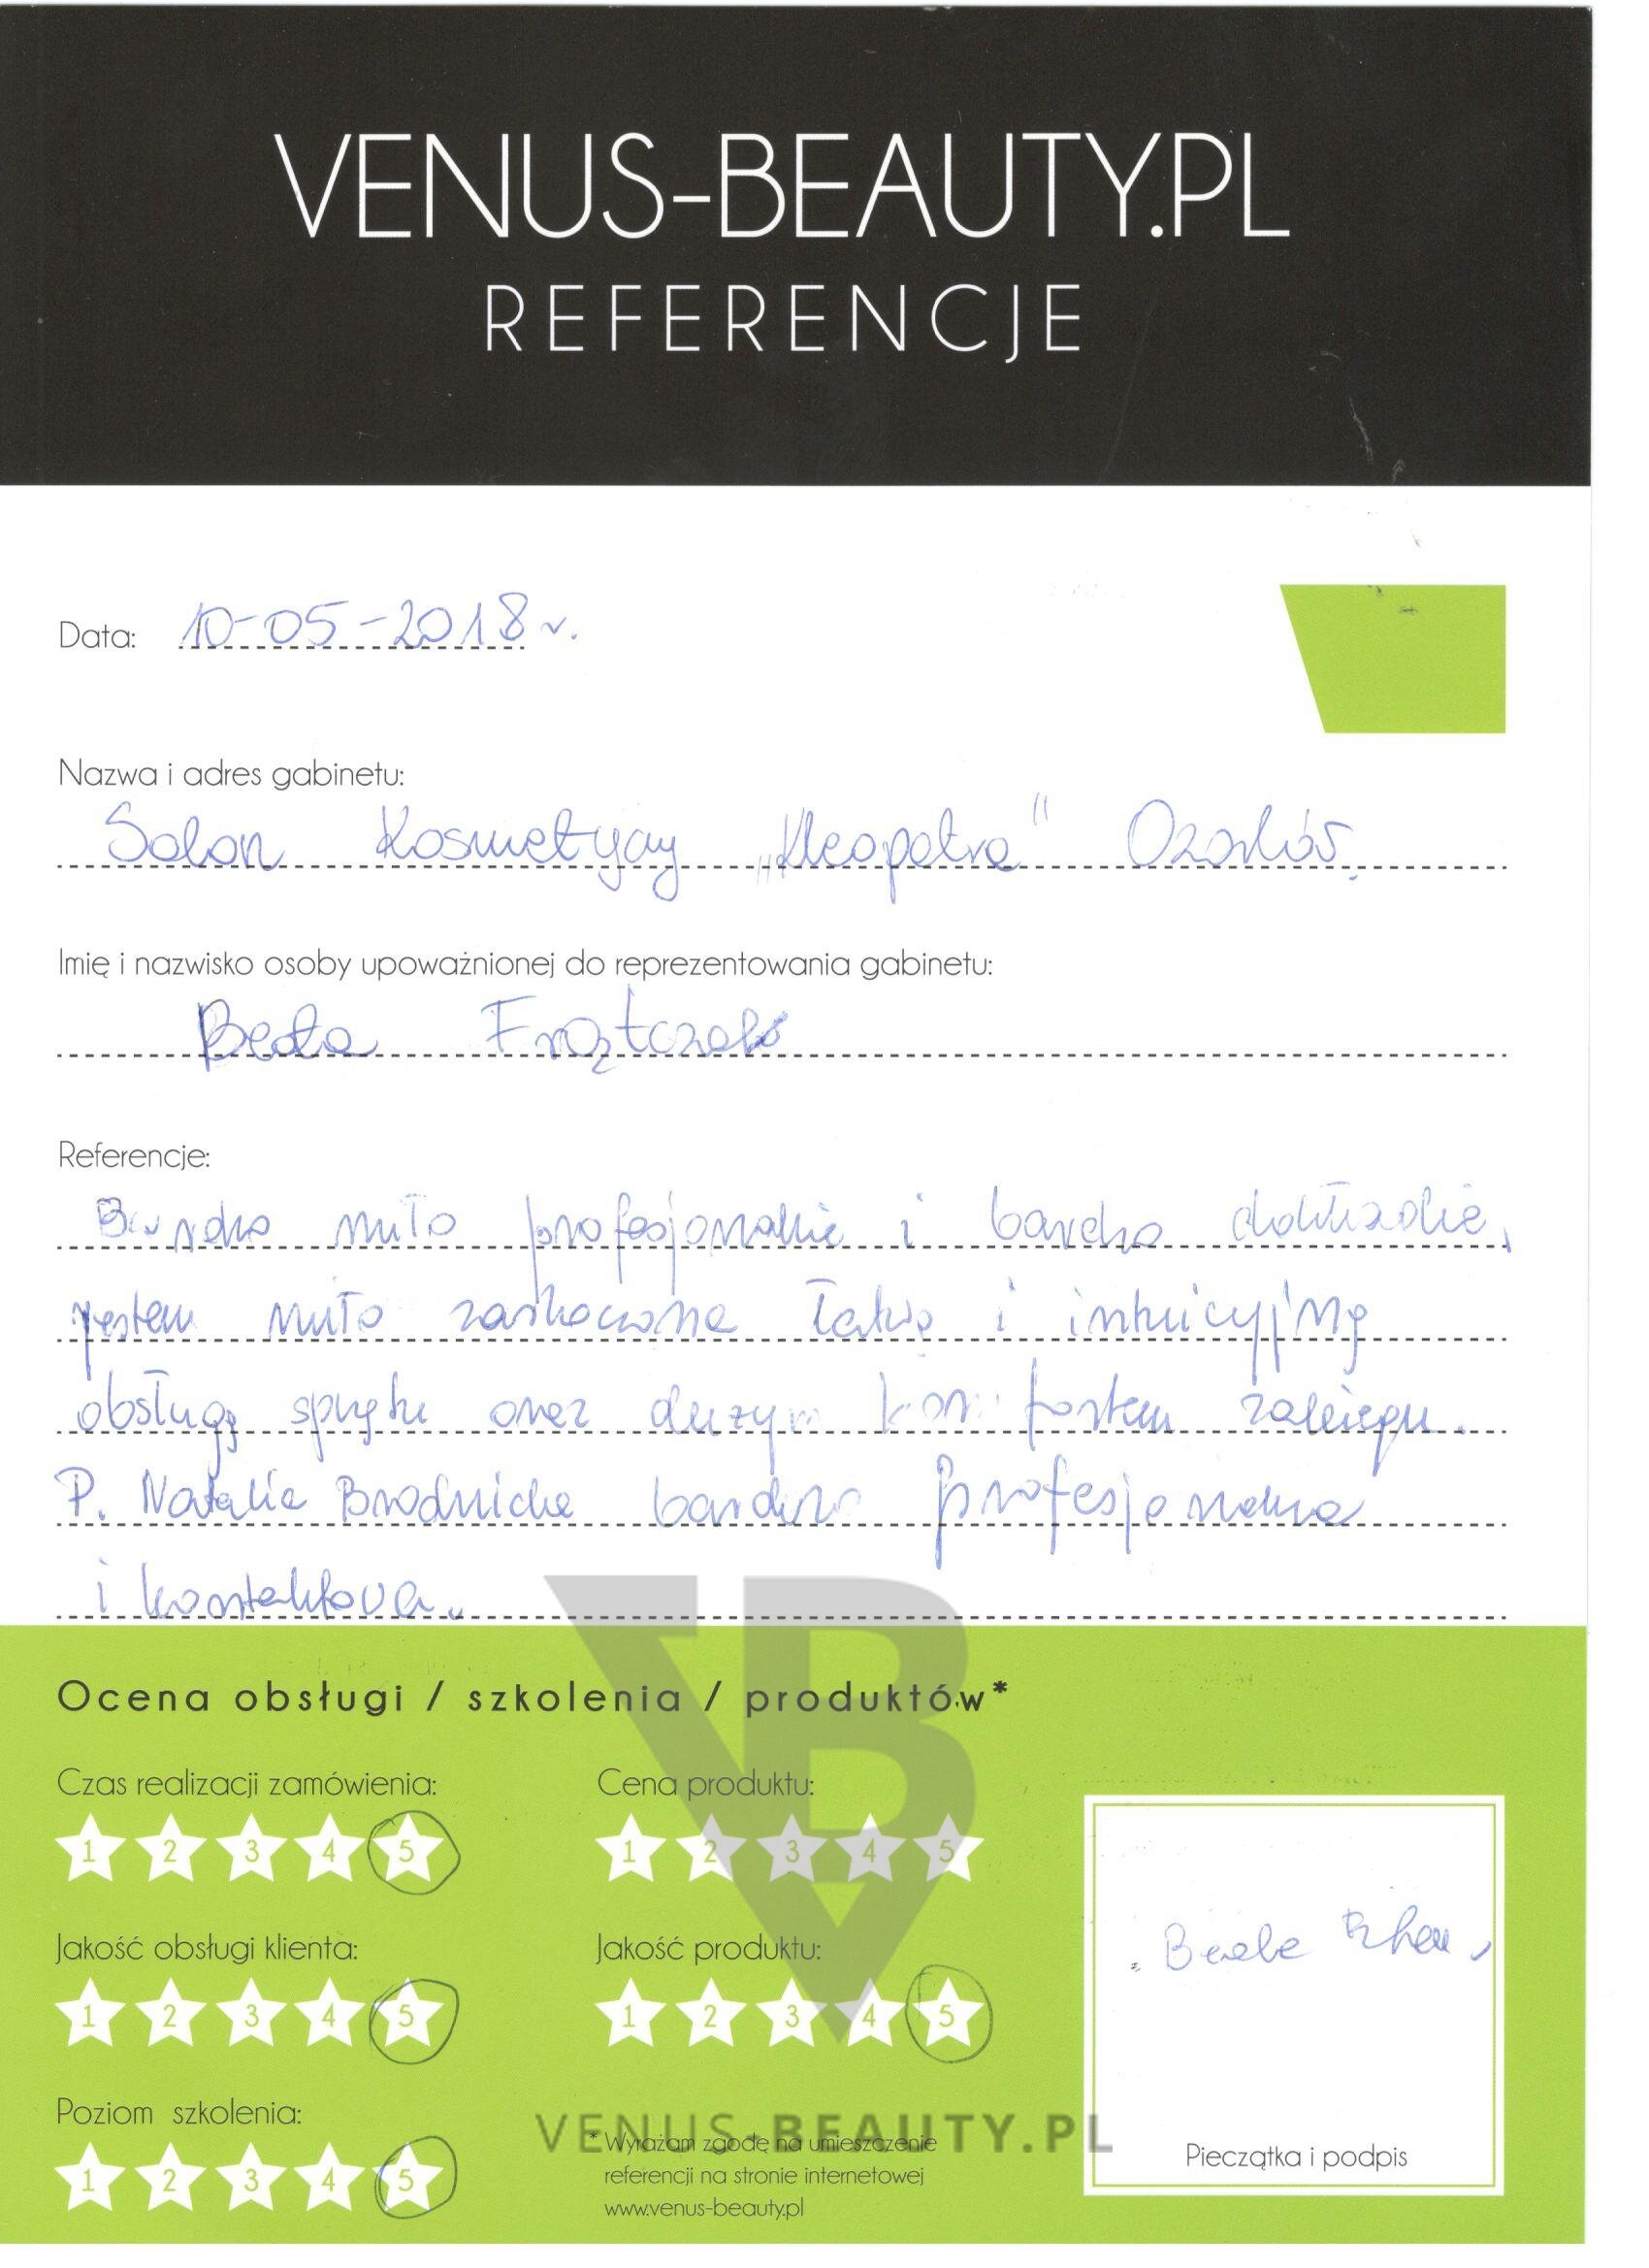 VENUS-BEAUTY.PL
REFERENCJE
Data: 10-05-2018 r.
Nazwa i adres gabinetu:
Salon Kosmetyczny „Kleopatra" Ozorków.
Imię i nazwisko osoby upoważnionej do reprezentowania gabinetu:
Beata Frątczak
Referencje:
Bardzo miło profesjonalnie i bardzo dokładnie,
jestem miło zaskoczona łatwą i intuicyjną
obsługą sprzętu oraz dużym komfortem zabiegu.
P. Natalia Brodnicka bardzo profesjonalna
i kontaktowa.
Ocena obsługi / szkolenia / produktów*
Czas realizacji zamówienia: Cena produktu:
1 2 3 4 5 1 2 3 4 5
Jakość obsługi klienta: Jakość produktu:
1 2 3 4 5 1 2 3 4 5
Beata
Poziom szkolenia:
1 2 3 4 5
VENUS-BEAUTY.PL
* Wyrażam zgodę na umieszczenie
referencji na stronie internetowej
www.venus-beauty.pl
Pieczątka i podpis
VB